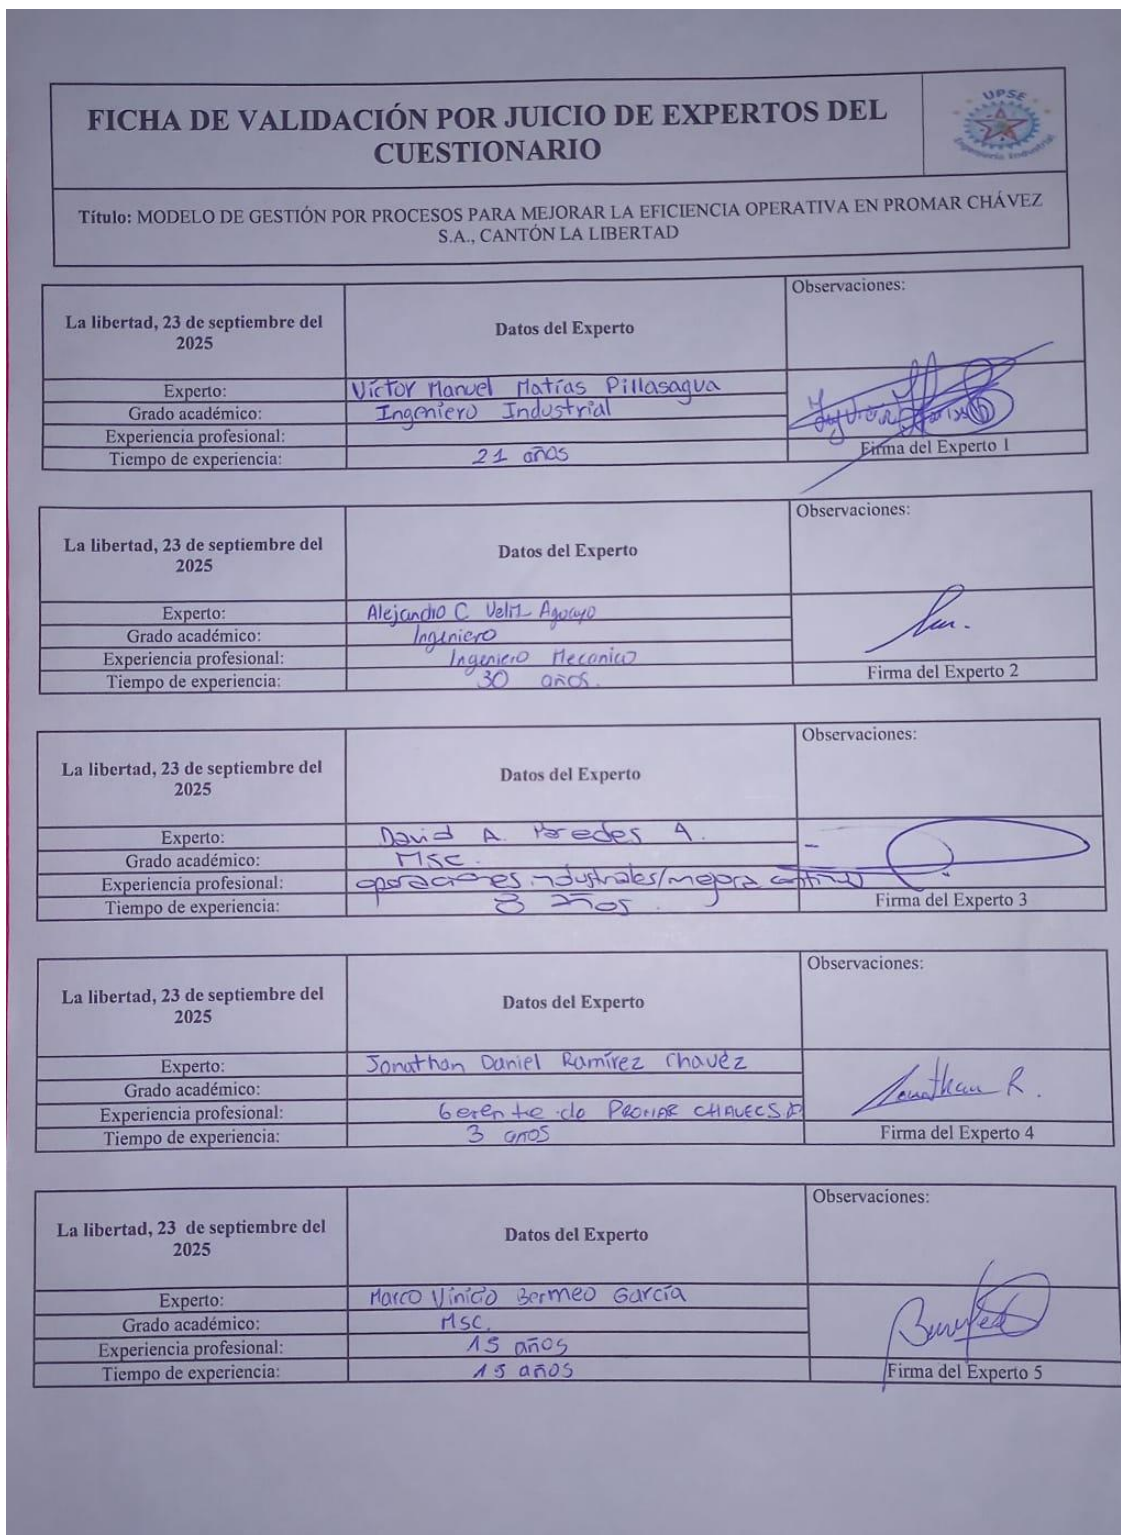 FICHA DE VALIDACIÓN POR JUICIO DE EXPERTOS DEL
CUESTIONARIO
UPSE
Ingeniería Industrial
Título: MODELO DE GESTIÓN POR PROCESOS PARA MEJORAR LA EFICIENCIA OPERATIVA EN PROMAR CHÁVEZ
S.A., CANTÓN LA LIBERTAD
La libertad, 23 de septiembre del
2025
Datos del Experto
Observaciones:
Experto: Víctor Manuel Matías Pillasagua
Grado académico: Ingeniero Industrial
Experiencia profesional:
Tiempo de experiencia: 21 años
Firma del Experto 1
La libertad, 23 de septiembre del
2025
Datos del Experto
Observaciones:
Experto: Alejandro C Veliz Aguayo
Grado académico: Ingeniero
Experiencia profesional: Ingeniero Mecanico
Tiempo de experiencia: 30 años.
Firma del Experto 2
La libertad, 23 de septiembre del
2025
Datos del Experto
Observaciones:
Experto: David A. Paredes A.
Grado académico: MSc.
Experiencia profesional: operaciones industriales/mejora continua
Tiempo de experiencia: 8 años.
Firma del Experto 3
La libertad, 23 de septiembre del
2025
Datos del Experto
Observaciones:
Experto: Jonathan Daniel Ramírez Chavéz
Grado académico:
Experiencia profesional: Gerente de PROMAR CHAVEC SA
Tiempo de experiencia: 3 anos
Jonathan R.
Firma del Experto 4
La libertad, 23 de septiembre del
2025
Datos del Experto
Observaciones:
Experto: Marco Vinicio Bermeo García
Grado académico: MSC.
Experiencia profesional: 15 años
Tiempo de experiencia: 15 años
Firma del Experto 5